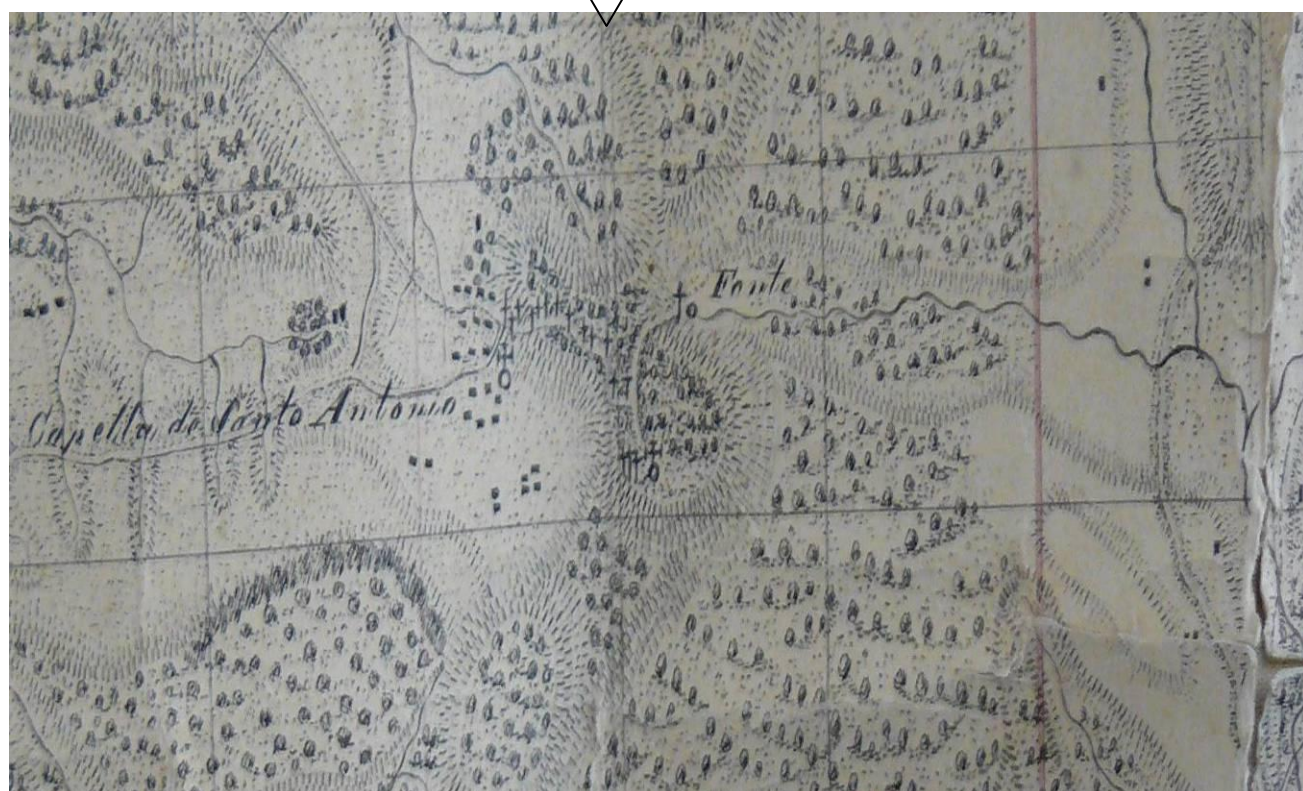 Fonte
Capella de Santo Antonio